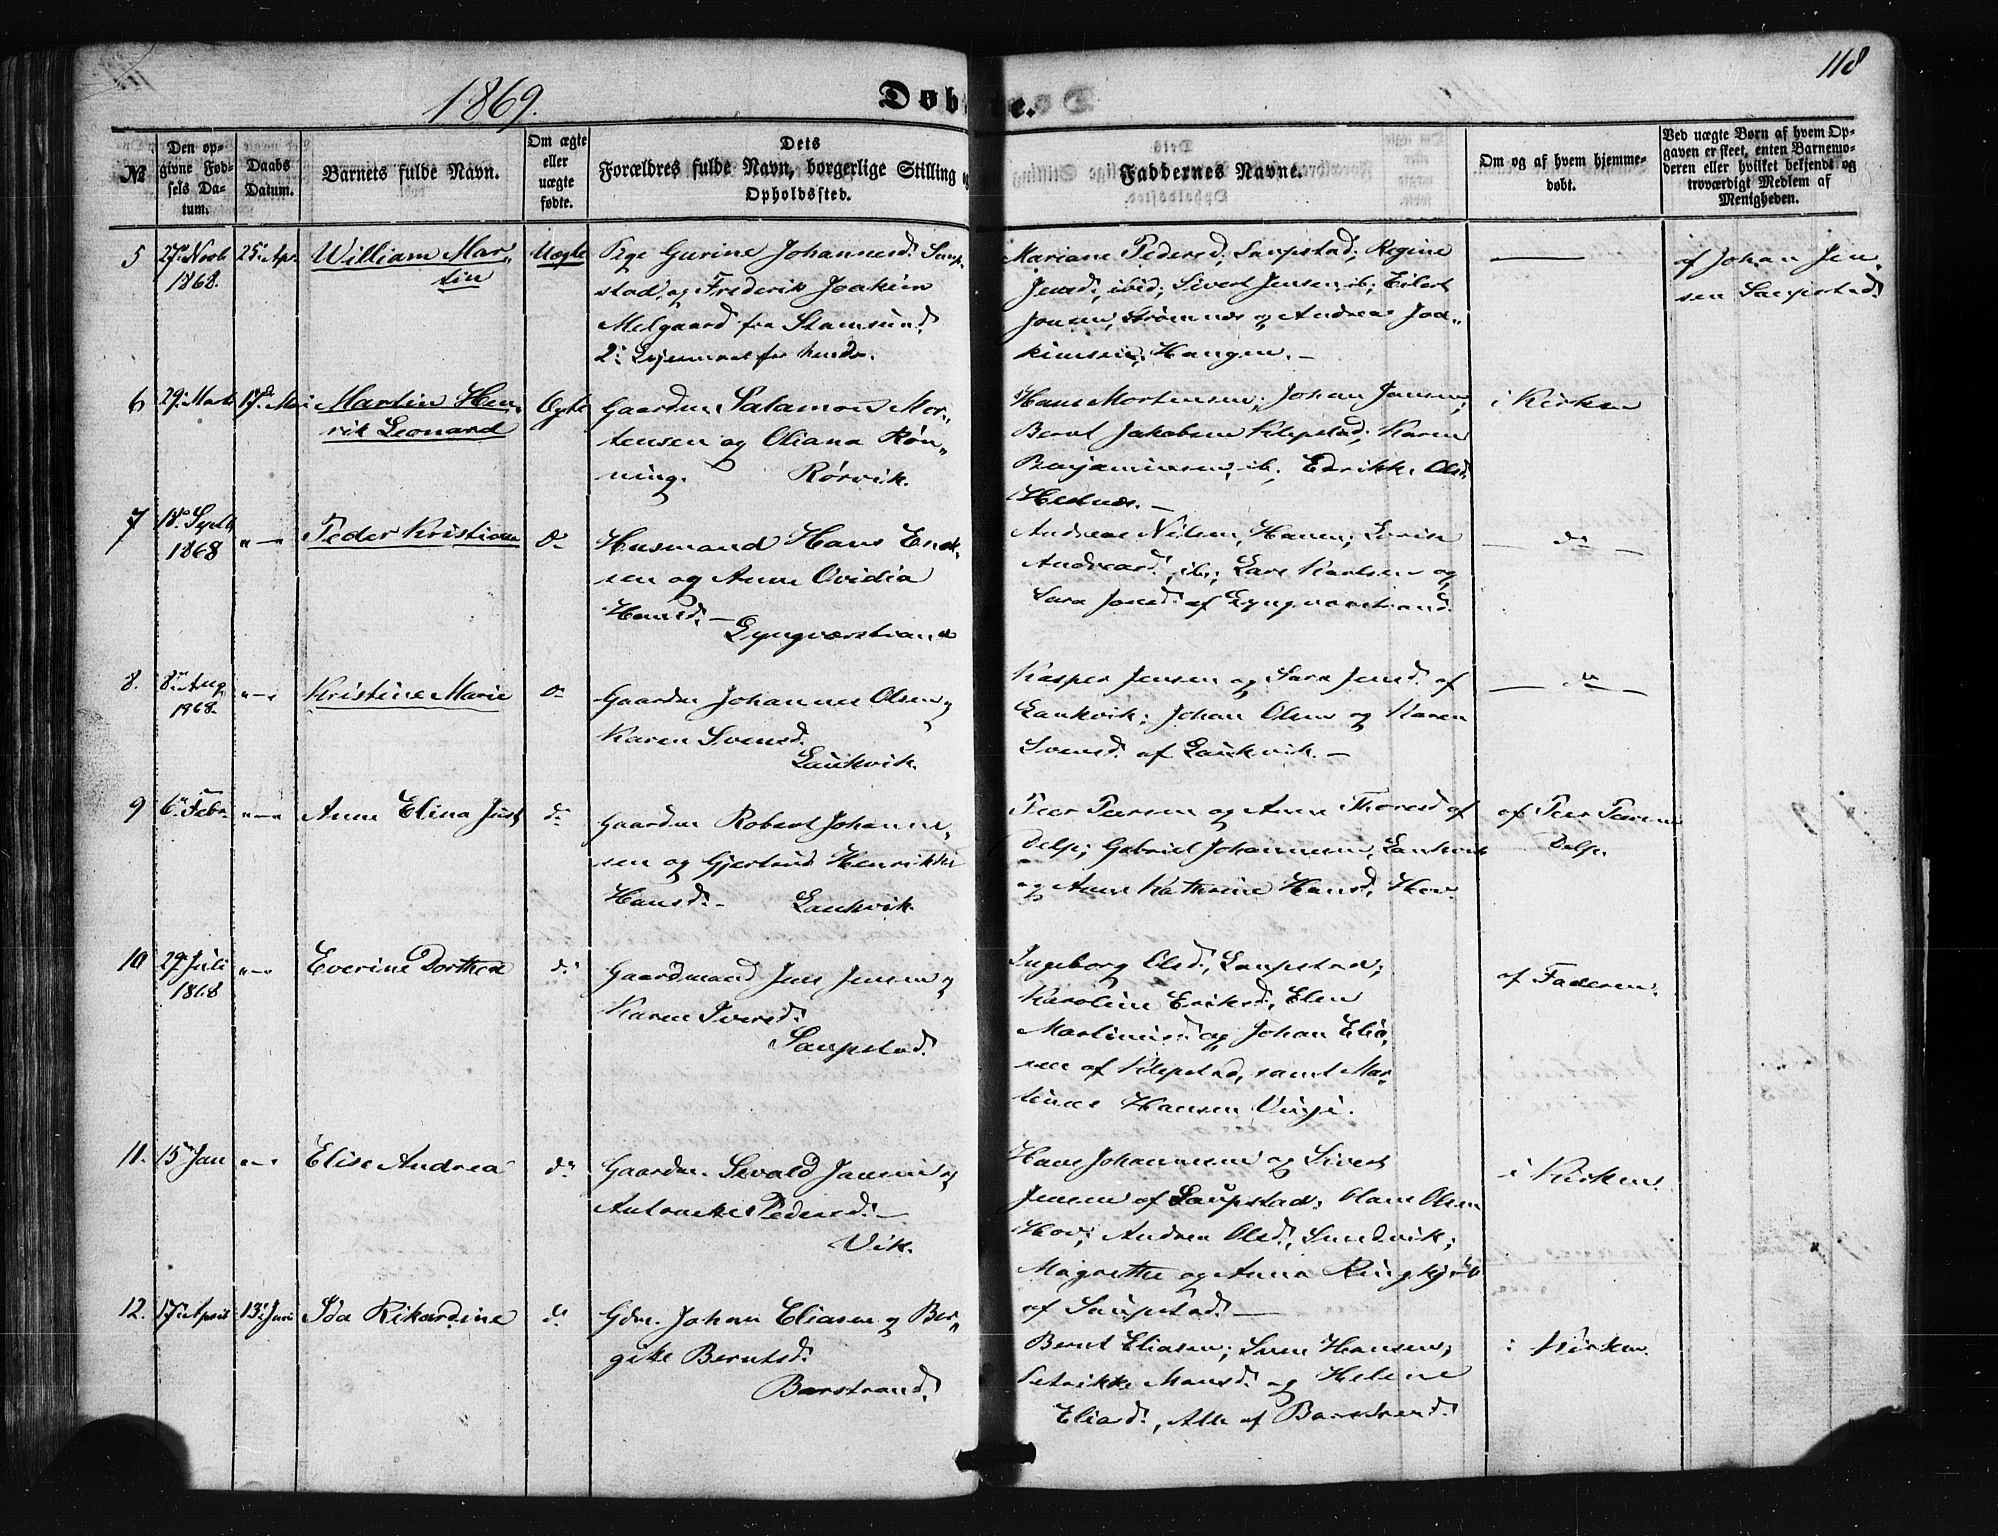 118
1869.
Døbte.
№
Den op-
givne Fød-
sels Da-
tum.
Daabs
Datum.
Barnets fulde Navn.
Om ægte
eller
uægte
fødte.
Dets
Forældres fulde Navn, borgerlige Stilling og
Opholdssted.
Faddernes Navne.
Om og af hvem hjemme-
døbt.
Ved uægte Børn af hvem Op-
gaven er skeet, enten Barnemo-
deren eller hvilket bekjendt og
troværdigt Medlem af
Menigheden.
5
27de Novb
1868.
25de Apr.
William Mar-
tin
Uægte
Pige Gurine Johannesd. Laup-
stad, og Frederik Joakim
Melgaard fra Stamsund.
2det Leiermaal for hende.
Mariane Pedersd, Laupstad; Regine
Jensd., ibid; Sivert Jensen, ib; Eilert
Jonsen, Strømnæs og Andreas Joa-
kimsen, Haugen.
af Johan Jen-
sen Laupstad.
6
29. Marts
17de Mai
Martin Hen-
rik Leonard
Ægte
Gaardm. Salamon Mor-
tensen og Oliana Røn-
ning. Rørvik.
Hans Mortensen; Johan Jansen;
Bernt Jakobsen Klepstad; Karen
Benjaminsen, ib; Edrikke Olsd.
Hestnæs.
i Kirken
7
18de Septb
1868
" — "
Peder Kristian
do
Husmand Hans Enok-
sen og Anne Ovidia
Hansd. —
Lyngværstrand
Andreas Nilsen, Hanen;
Andreasd., ib; Lars Karlsen og
Sara Jensd. af Lyngværstrand.
— do —
8.
8de Aug
1968.
" — "
Kristine Marie
do
Gaardm Johannes Olsen og
Karen Svensd.
Laukvik.
Kasper Jensen og Sara Jensd. af
Laukvik; Johan Olsen og Karen
Svensd. af Laukvik. —
— do —
9
6te Febr
" — "
Anne Elina Just
do
Gaardm Robert Johanne-
sen og Gjertrud Henrikke
Hansd. — Laukvik.
Peer Peersen og Anne Thoresd af
Delp; Gabriel Johannesen, Laukvik
og Anne Kathrine Hansd, Hov.
af Peer Peersen
Delp.
10
29. Juli
1868
" — "
Everine Dorthea
do
Gaardmand Jens Jensen og
Karen Iversd.
Laupstad.
Ingeborg Olsd., Laupstad;
Karoline Eriksd., Elen
Martinusd. og Johan Elia-
sen af Klepstad, samt Mar-
tinus Hansen Vinje.
af Faderen.
11.
15de Jan
" — "
Elise Andrea
do
Gaardm. Sevald Jansen og
Antonette Pedersd. —
Vik.
Hans Johannesen og Sivert
Jensen af Laupstad; Olaus Olsen
Hov; Andrea Olsd., Sundvik;
Magrethe og Anna Ringkjøb
af Laupstad. —
i Kirken.
12.
17de April
13de Juni
Ida Rikardine
do
Gdm. Johan Eliasen og Ber-
gitte Berntsd.
Barstrand.
Bernt Eliasen; Sven Hansen;
Petrikke Monsd. og Helene
Eliasd., Alle af Barstrand.
i Kirken.